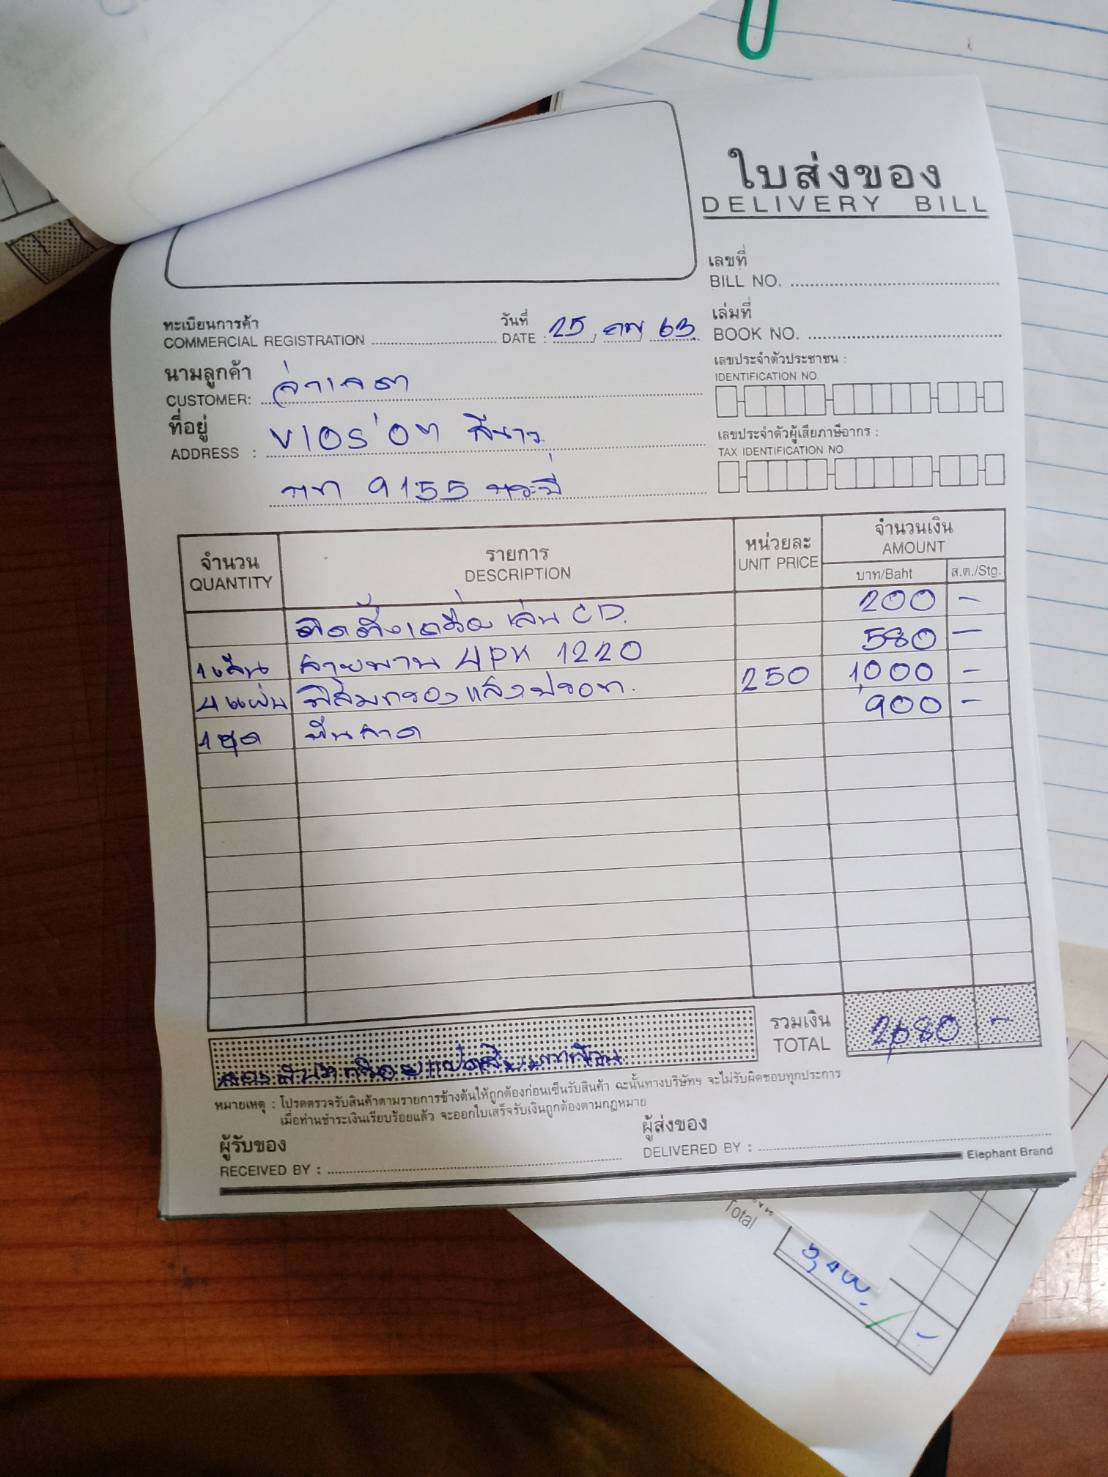 ใบส่งของ
DELIVERY BILL
เลขที่
BILL NO.
ทะเบียนการค้า
COMMERCIAL REGISTRATION
วันที่
DATE : 25 กพ 63
เล่มที่
BOOK NO.
นามลูกค้า
CUSTOMER: จ่าเจตา
เลขประจำตัวประชาชน :
IDENTIFICATION NO
ที่อยู่
ADDRESS : VIOS สีขาว
เลขประจำตัวผู้เสียภาษีอากร :
TAX IDENTIFICATION NO
กท 9155 กระบี่
จำนวน
QUANTITY
รายการ
DESCRIPTION
หน่วยละ
UNIT PRICE
จำนวนเงิน
AMOUNT
บาท/Baht
ส.ต./Stg.
ติดตั้งเครื่องเล่น CD. 200 -
1 เส้น สายพาน 4PK 1220 580 -
4 แผ่น ฟิล์มกรองแสงปรอท. 250 1000 -
1 ชุด 900 -
รวมเงิน
TOTAL
2,680 -
หมายเหตุ : โปรดตรวจรับสินค้าตามรายการข้างต้นให้ถูกต้องก่อนเซ็นรับสินค้า ฉะนั้นทางบริษัทฯ จะไม่รับผิดชอบทุกประการ
เมื่อท่านชำระเงินเรียบร้อยแล้ว จะออกใบเสร็จรับเงินถูกต้องตามกฎหมาย
ผู้รับของ
RECEIVED BY :
ผู้ส่งของ
DELIVERED BY :
Elephant Brand
Total